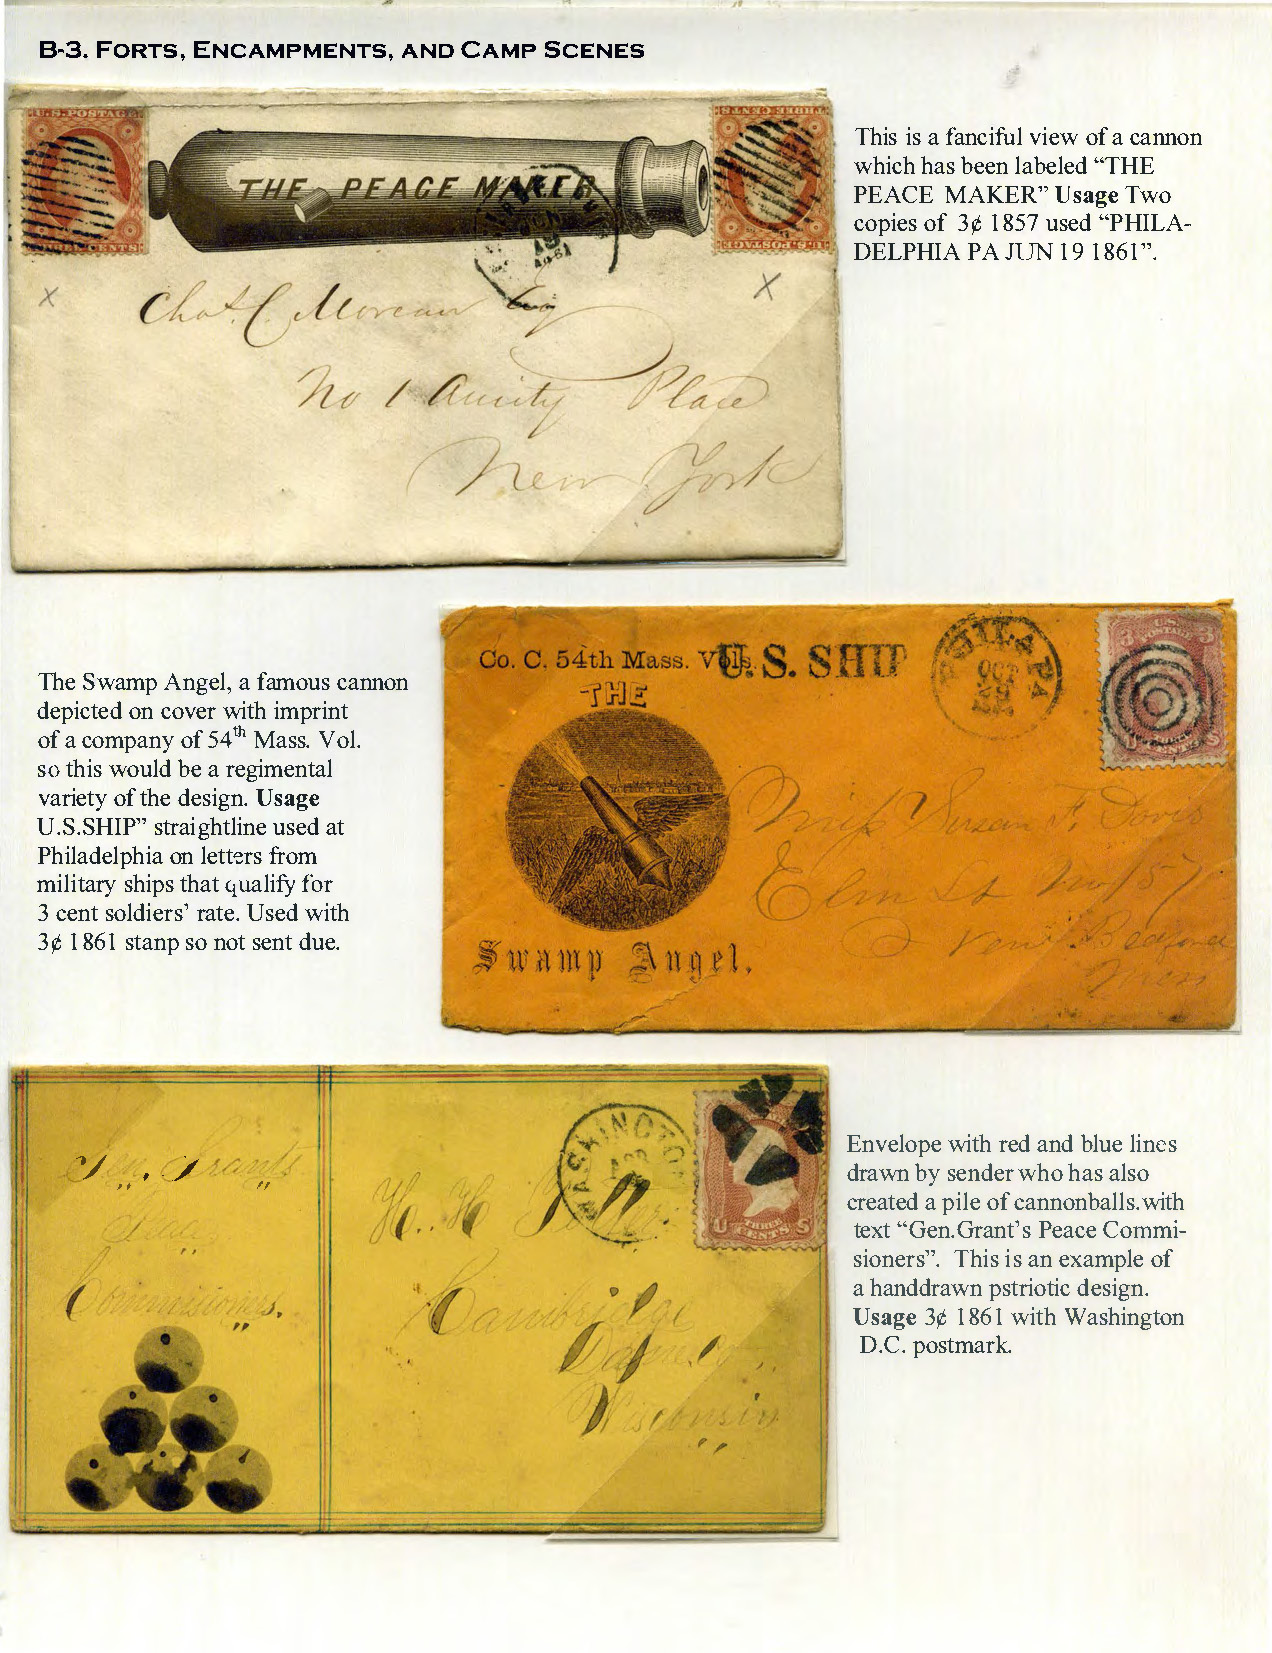 B-3. FORTS, ENCAMPMENTS, AND CAMP SCENES
U.S. POSTAGE
THREE CENTS
THE PEACE MAKER
THREE CENTS
U.S. POSTAGE
JUN
19
1861
Chas. C. Moreau Esq
No 1 Amity Place
New York
This is a fanciful view of a cannon
which has been labeled “THE
PEACE MAKER” Usage Two
copies of 3¢ 1857 used “PHILA-
DELPHIA PA JUN 19 1861”.
The Swamp Angel, a famous cannon
depicted on cover with imprint
of a company of 54th Mass. Vol.
so this would be a regimental
variety of the design. Usage
U.S.SHIP” straightline used at
Philadelphia on letters from
military ships that qualify for
3 cent soldiers’ rate. Used with
3¢ 1861 stanp so not sent due.
Co. C. 54th Mass. Vols.
U.S. SHIP
THE
Swamp Angel.
PHILA PA
OCT
3 U.S. POSTAGE 3
U CENTS S
Miss Susan F. Davis
Elm St No 157
New Bedford
Mass
Gen. Grants
Peace
Commissioners.
WASHINGTON
APR
U THREE CENTS S
H. H.
Cambridge
Dane Co.
Wisconsin
Envelope with red and blue lines
drawn by sender who has also
created a pile of cannonballs.with
text “Gen.Grant’s Peace Commi-
sioners”. This is an example of
a handdrawn pstriotic design.
Usage 3¢ 1861 with Washington
D.C. postmark.